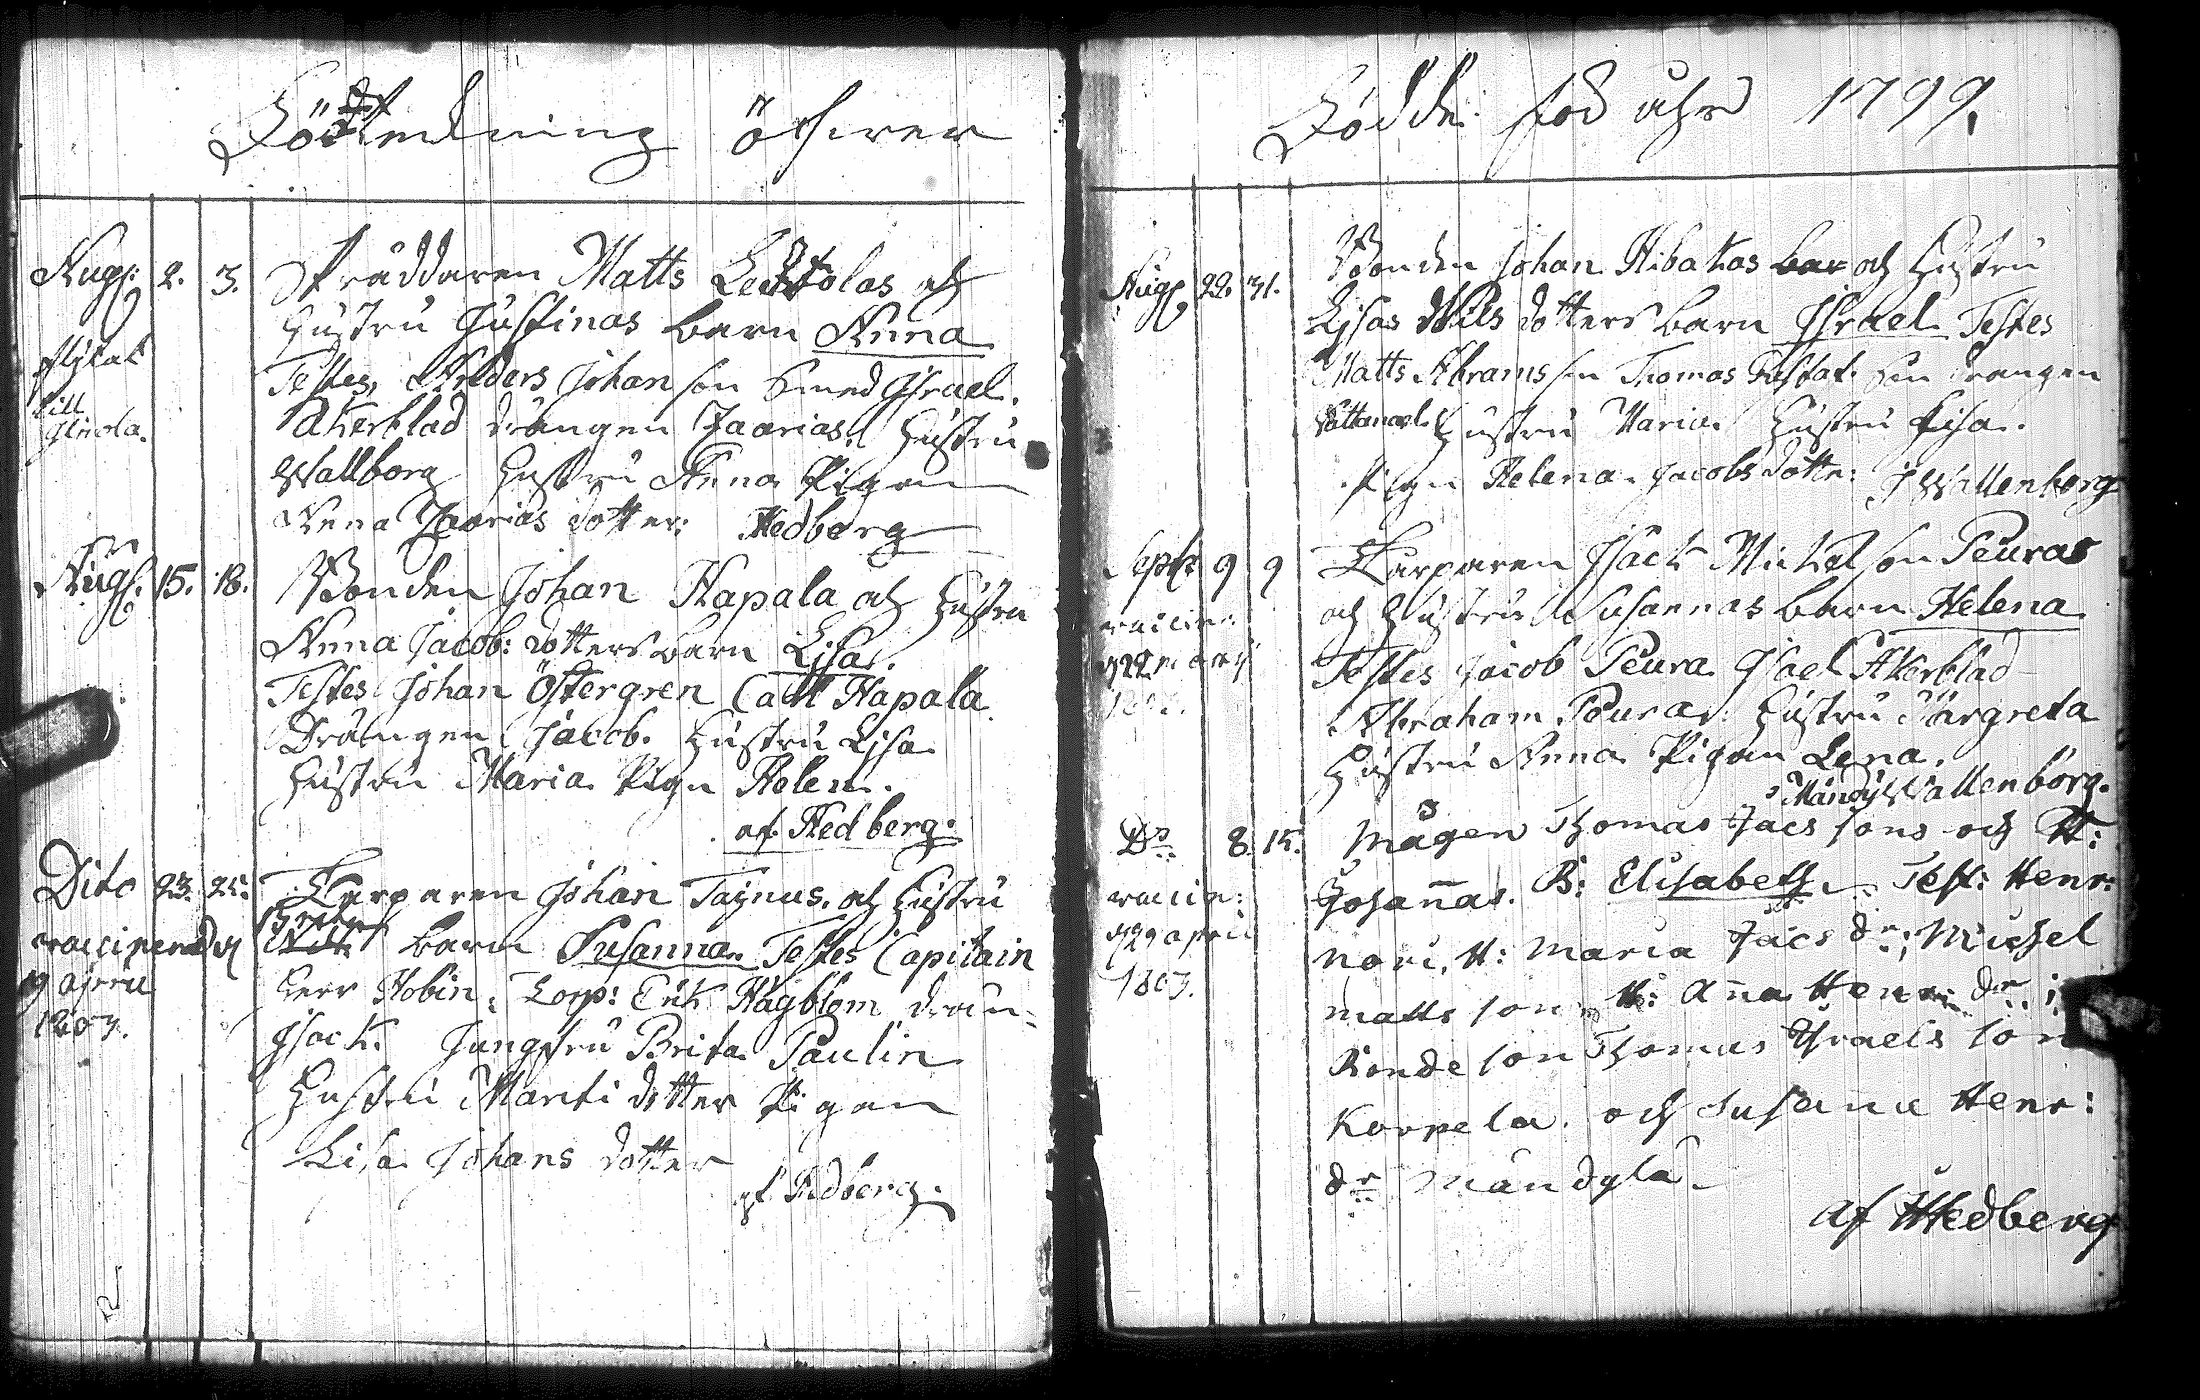 Förtekning öfwer
Augs: 2. 3. Skräddaren Matts Lechtolas och
Hustru Justinas barn Anna
flytat Testes, Anders Johan son Smed Israel
till Åkerblad drängen Zacarias, Hustru
Wallborg Hustru Anna Pigan
Anna Zacarias dotter: Hedberg
Augs: 15. 18. Bonden Johan Hapala och Hustru
Anna Jacob: dotters barn Lisa.
Testes Johan Östergren Carl Hapala
Drängen Jacob. Hustru Lisa
Hustru Maria Pign Helen.
af Hedberg.
Dito 23. 25. Torparen Johan Tajnus. och Hustru
barn Susanna. Testes Capitain
Herr Robin, Corp: Erik Hagblom drän:
Isack. Jungfru Brita Paulin
Hustru dotter Pigan
Lisa Johans dotter
af Hedberg.
Födde för åhr 1799.
Augs 22. 31. Bonden Johan Ribakas bar och Hustru
Lisas Nils dotters barn Israel Testes
Matts Abrams son Thomas Gustaf: son drängen
Hustru Maria Hustru Lisa.
Pign Helena Jacobs dotte: Wallenborg
Septr 9 9 Torparen Isack Mickel son Peuras
och Hustru Susannas barn Helena
Testes Jacob Peura Isael Åkerblad
Abraham Peuras Hustru Margreta
Hustru Anna Pigan Lena.
Wallenborg.
Do 8. 15. Mågen Thomas Jacs sons och H:
Johañas. B: Elisabeth. Test: Henr:
H: Maria Jacs dr; Michel
Matts son H: Aña Henr: dr
son Thomas Israels son
Korpela. och Susana Henr:
dr Mändylä
af Hedberg